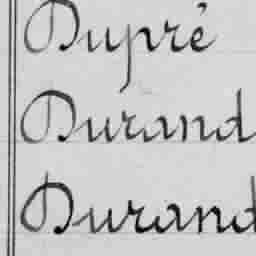 Dupré
Durand
Durand